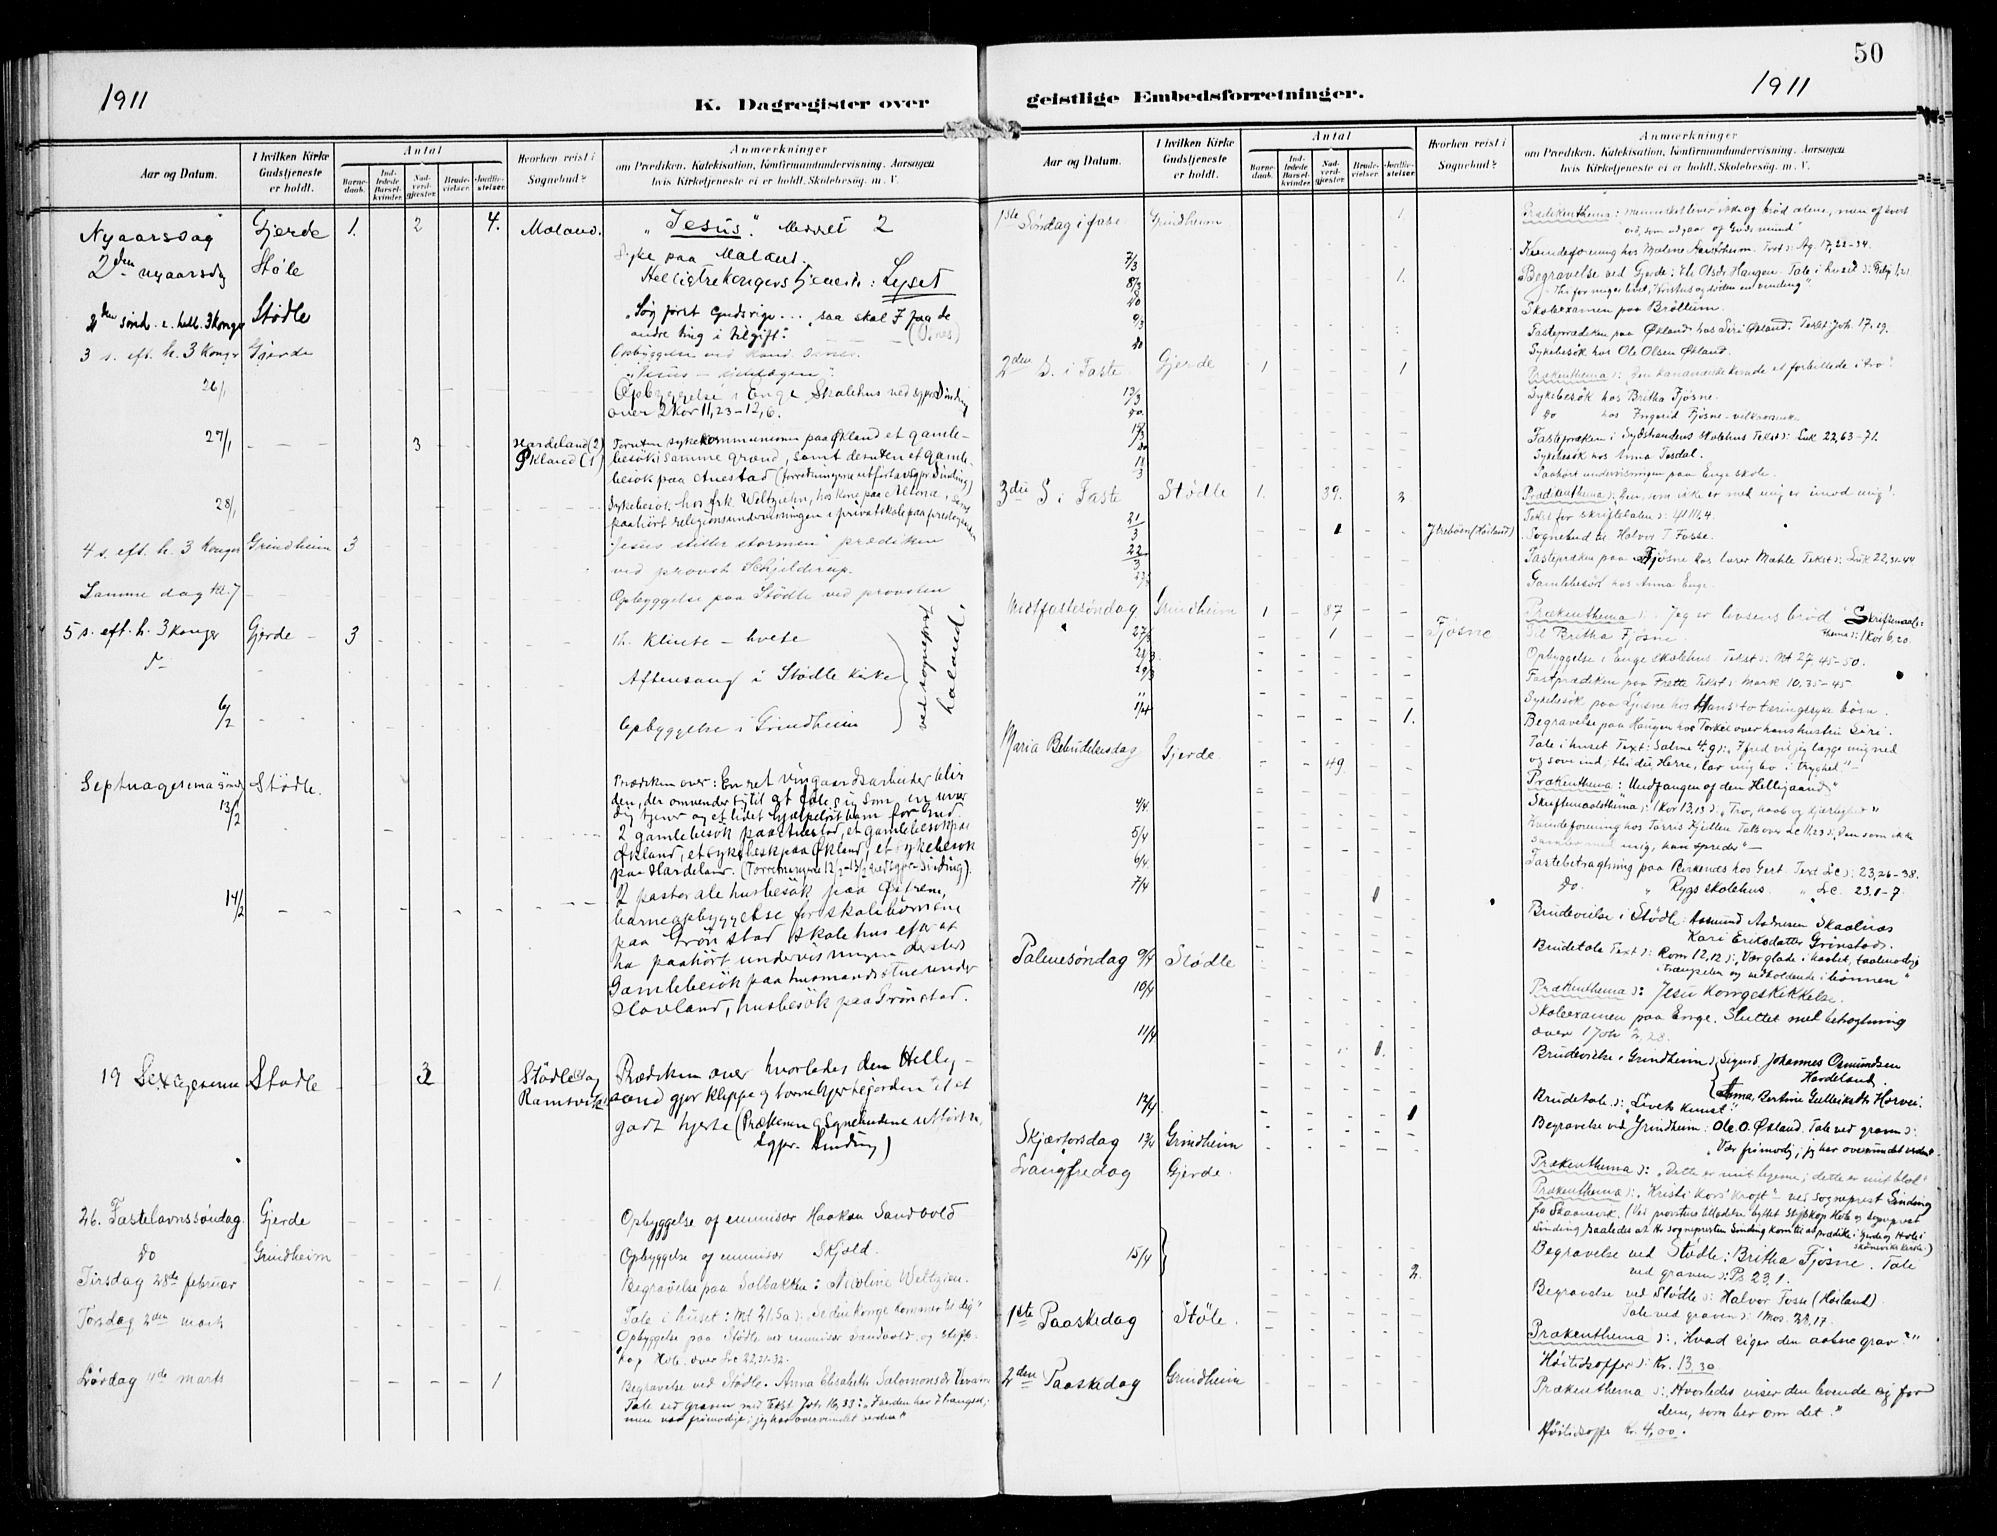 1911
K. Dagregister over
Aar og Datum.
I hvilken Kirke Gudstjeneste er holdt.
Antal
Barnedaab.
Indledede Barselkvinder.
Nadvergjæster.
Brudevielser.
Jordfæstelser.
Hvorhen reist i Sognebud?
Anmærkninger
om Prædiken, Katekisation, Konfirmandundervisning, Aarsagen
hvis Kirketjeneste ei er holdt, Skolebesøg, m. V.
Nyaarsdag Gjerde 1. 2 4. Maland. "Jesus". Merket 2
Syke paa Maland.
2den nyaarsdg Støle Helligtrekongers tjeneste: Lyset
2den sønd. e. hell. 3 konger Stødle "Søg først Gudsrige... saa skal I faa de
andre ting i tilgift".
3 s. eft. h. 3 konger Gjerde Opbyggelse ved kand.
26/1 Opbyggelse i Enge Skolehus ved sgpr Sinding
over 2 Kor 11,23-12,6.
27/1 3 Hardeland (2) Foruten sykekommunionen paa Økland et gamle-
Økland (1) besøk i samme grænd, samt desuten et gamle-
besøk paa Anestad (Forretningerne utført av sgpr Sinding)
28/1 Sykebesøk hos frk. Weltzien, hos kone paa Altona, samt
paahørt religionsundervisningen i privatskole paa prestegaarden
4 s. eft. h. 3 konger Grindheim 3 "Jesus stiller stormen" prædiken
ved provst Schjelderup.
Samme dag kl. 7 Opbyggelse paa Stødle ved provsten
5 s. eft. h. 3 konger Gjerde 3 Th. Klinte - hvete
do Aftensang i Stødle kirke
6/2 Opbyggelse i Grindheim
ved sogneprest Haland.
Septuagesima sønd. Stødle. Prædiken over: En ret vingaardsarbeider blir
den, der omvender sig til at føle sig som en uvær-
dig tjener og et lidet hjælpeløst barn for Gud.
13/2 2 gamlebesøk paa Anestad, et gamlebesøk paa
Økland, et sykebesk paa Økland, et sykebesøk
paa Hardeland. (Forretningerne 12/2-13/2 ved sgpr Sinding).
14/2 2 pastorale husbesøk paa Østrem,
barneopbyggelse for skolebørnene
paa Grønstad skolehus efter at
ha paahørt undervisningen dersteds
Gamlebesøk paa husmandsstue under
Hovland, husbesøk paa Grønstad.
19 Sexagesima Stødle 3 Stødle og Prædiken over hvorledes den Hellig-
Ramsvik aand gjør klippe og tornebjerkejorden til et
godt hjerte (Prækenen og Sognebudene utført av
Sgpr. Sinding)
26. Fastelavnssøndag Gjerde Opbyggelse af emmisær Haakon Sandvold
do Grindheim Opbyggelse af emmisær Skjold.
Tirsdag 28de februar 1 Begravelse paa Solbakken: Nicoline Weltzien.
Tale i huset: Mt 21.5a: "Se din konge kommer til dig"
Torsdag 2den mars Opbyggelse paa Stødle ved emmisær Sandvold og stifts-
kap Hole over Lc 22,31-32.
Lørdag 4de marts 1 Begravelse ved Stødle. Anna Elisabeth Salomonsdr
Tale ved graven med Tekst Joh 16,33: "I verden har I trængsel;
men vær frimodige; jeg har overvundet verden"
50
1911
geistlige Embedsforretninger.
Aar og Datum.
I hvilken Kirke Gudstjeneste er holdt.
Antal
Barnedaab.
Indledede Barselkvinder.
Nadvergjæster.
Brudevielser.
Jordfæstelser.
Hvorhen reist i Sognebud?
Anmærkninger
om Prædiken, Katekisation, Konfirmandundervisning, Aarsagen
hvis Kirketjeneste ei er holdt, Skolebesøg, m. V.
1ste Søndag i faste Grindheim 1 Prædikenthema: mennesket lever ikke af brød alene, men af hvert
ord, som udgaar af Guds mund"
7/3 Kvindeforening hos Grindheim. Text: Ag. 17,22-34.
8/3 1. Begravelse ved Gjerde: Ole Olsdr Haugen. Tale i huset: Filip 1,21
"Thi for mig er livet Kristus og døden en vinding"
do Skoleexamen paa Bröllum.
9/3 Fasteprædiken paa Økland hos Siri Økland. Tekst: Joh. 17.19.
do Sykebesøk hos Ole Olsen Økland.
2den S. i Faste Gjerde 1 1 Prækenthema: Den kananæiske kvinde et forbillede i tro".
13/3 Sykebesøk hos Britha Fjøsne.
do. do hos Ingerid Fjøsne
17/3 Fastepræken i Sydstrandens skolehus Tekst: Luk 22,63-71.
do Sykebesøk hos Anna Tosdal.
18/3 Paahørt undervisningen paa Enge skole.
3die S i Faste Stødle 1. 39. 3 Prædikenthema: Den, som ikke er med mig er imod mig".
Tekst for skriftetalen:
21/3 1 Ytrebøen (Høiland) Sognebud til Halvor T. Fosse.
22/3 Fastepræken paa Fjøsne hos lærer Mæhle Tekst: Luk 22,31-44
Gamlebesøk hos Anna Enge.
Midtfastesøndag Grindheim 1 87 Prækenthema: Jeg er livsens brød" Skriftemaals-
thema: 1 Kor 6.20.
27/3 1 Fjøsne Til Britha Fjøsne.
28/3 Opbyggelse i Enge skolehus Tekst: Mt 27.45-50.
29/3 Fastpræken paa Frette Tekst: Mark 10,35-45
" Sykebesøk paa Fjøsne hos Hans to tæringssyke børn.
1/4 1. Begravelse paa Haugen hos Torkel over hans hustru Siri.
Tale i huset Text: Salme 4.9: "I fred vil jeg lægge mig ned
og sove ind, thi du, Herre, lar mig bo i tryghed."
Maria Bebudelsesdag Gjerde. 49 Prækenthema: Undfangen af den Helligaand"
Skriftemaalsthema: 1 Kor 13,13: "Tro, haab og kjærlighet"
4/4 Kvindeforening hos Torris Kjellen Tale over Lc 11.23: "Den som ikke
samler med mig, han spreder"
5/4 Fastebetragtning paa Birkenes hos Gert. Text Lc: 23,26-38.
6/4 do. " Rygs skolehus. " Lc. 23.1-7.
7/4 1 Brudevielse i Stødle: Asmund Andresen Skaalnes
Kari Eriksdatter Grinstad.
Brudetale Text: Rom 12,12: "Vær glade i haabet, taalmodige
i trængselen og vedholdende i bønnen"
Palmesøndag 9/4 Stødle Prækenthema: Jesu kongeskikkelse.
10/4 Skoleexamen paa Enge. Sluttet med betragtning
over 1 Joh 2,28.
11/4 1. Brudevielse i Grindheim: Sigurd Johannes Osmundsen
Hardeland.
Anna Bertine Gulleiksdtr Horvei.
Brudetale: "Livets kunst"
12/4 1 Begravelse ved Grindheim: Ole O. Økland. Tale ved graven:
"Vær frimodig, jeg har overvundet verden"
Skjærtorsdag 13/4 Grindheim Prækenthema: "Dette er mit legeme; dette er mit blod"
Langfredag Gjerde. Prækenthema: "Kristi kors' kraft" ved sogneprest Sinding
fra Skaanevik. (Ved provstens tilladelse byttet Stiftskap Hole og sogneprest
Sinding saaledes at Hr sognepresten Sinding kom til at prædike i Gjerde og Hole i
Skånevik kirke.)
15/4 2. Begravelse ved Stødle: Britha Fjøsne. Tale
ved graven: Ps 23,1.
Begravelse ved Stødle: Halvor Fosse (Høiland).
Tale ved graven: 1 Mos.
1ste Paaskedag Støle. Prækenthema: "Hvad siger den aabne grav?"
Høitidsoffer: Kr. 13.30
2den Paaskedag Grindheim Prækenthema: "Hvorledes viser den levende sig for
dem, som ber om det."
Høitidsoffer Kr. 4,00.